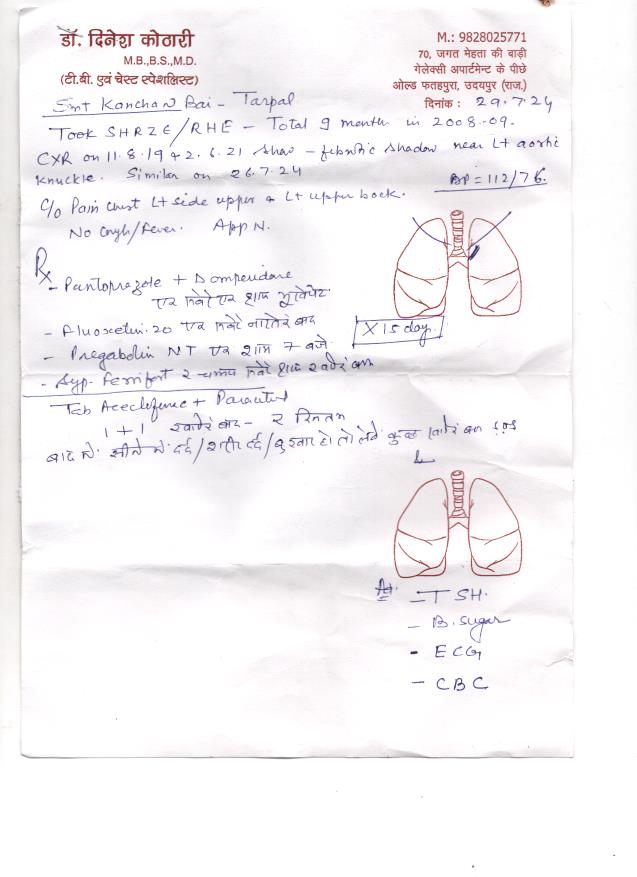 डॉ. दिनेश कोठारी
M.B.,B.S.,M.D.
(टी.बी. एवं चेस्ट स्पेशलिस्ट)
M.: 9828025771
70, जगत मेहता की बाड़ी
गेलेक्सी अपार्टमेन्ट के पीछे
ओल्ड फतहपुरा, उदयपुर (राज.)
दिनांक : 29.7.24
Smt Kanchan Bai - Tarpal
Took SHRZE/RHE - Total 9 month in 2008-09.
CXR on 11.8.19 & 2.6.21 show - fibrotic shadow near Lt aortic
knuckle. Similar on 26.7.24
BP = 112/76
C/o Pain chest Lt side upper & Lt upper back.
No Cough/Fever. App N.
Rx
- Pantoprazole + Domperidone
एक सवेरे एक शाम भूखे पेट
- Fluoxetin.20 एक सवेरे नाश्ते बाद
X 15 day.
- Pregabalin NT एक शाम 7 बजे
- Syp. Ferrifort २ चम्मच सवेरे शाम खाने बाद
Tab Aceclofenac + Paracetamol
1 + 1 खाने बाद - २ दिन तक
बाद में सीने में दर्द/शरीर दर्द/बुखार हो तो लेवें कुछ खाने बाद SOS
- TSH.
- B. Sugar
- ECG
- CBC